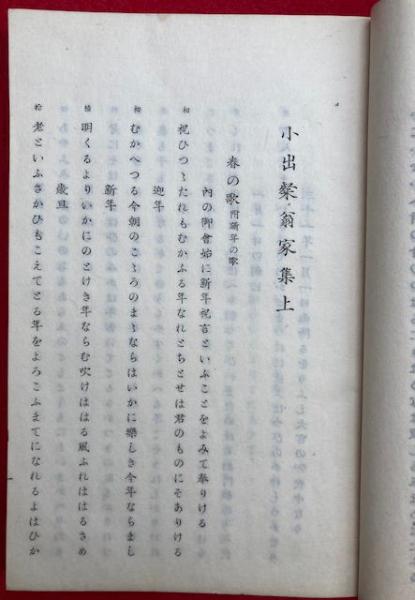 小出粲翁家集上
春の歌 附新年の歌
内の御會始に新年祝言といふことをよみて奉りける
祝ひつゝたれもむかふる年なれとちとせは君のものにそありける
迎年
むかへつる今朝のこゝろのまゝならはいかに樂しき今年ならまし
新年
明くるよりいかにのとけき年ならむ吹けははる風ふれははるさめ
歳旦
老といふさかひもこえてとる年をよろこふまてになれるよはひか